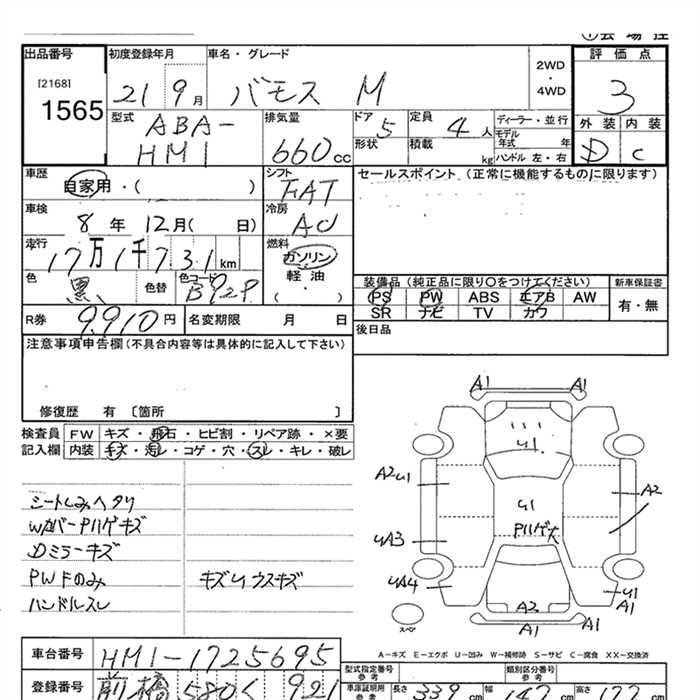 ①会場控
出品番号
[2168]
1565
初度登録年月
21 9月
車名・グレード
バモス M
2WD
・
4WD
評価点
3
型式
ABA-
HM1
排気量
660cc
ドア 5
形状
定員 4人
積載 kg
ディーラー・並行
モデル
年式 年
ハンドル 左・右
外装 内装
D C
車歴
自家用・( )
シフト
FAT
セールスポイント、(正常に機能するものに限ります)
車検
8年 12月( 日)
冷房
AC
走行
17万1千731km
燃料
ガソリン
軽油
・( )
色
黒
色替
色コード
B92P
装備品(純正品に限り○をつけてください)
PS PW ABS エアB AW
SR ナビ TV カワ
新車保証書
有・無
R券 9,910円
名変期限 月 日
後日品
注意事項申告欄(不具合内容等は具体的に記入して下さい)
修復歴 有 〔箇所 〕
検査員 FW キズ・飛石・ヒビ割・リペア跡・×要
記入欄 内装 キズ・汚レ・コゲ・穴・スレ・キレ・破レ
シートしみヘタリ
Wカバー P川ゲキズ
Dミラーキズ
PWFのみ
キズUウスキズ
ハンドルスレ
A1 A1
U1
A2U1
U1
A2
P川ゲ大
UA3
UA4
U1
A1
A3
A1 A1
スペア
A-キズ E-エクボ U-凹み W-補修跡 S-サビ C-腐食 XX-交換済
車台番号 HM1-1725695
型式指定番号
参考
類別区分番号
参考
登録番号 前橋 580く 921
車庫証明用
参考
長さ 339cm 幅 147cm 高さ 177cm